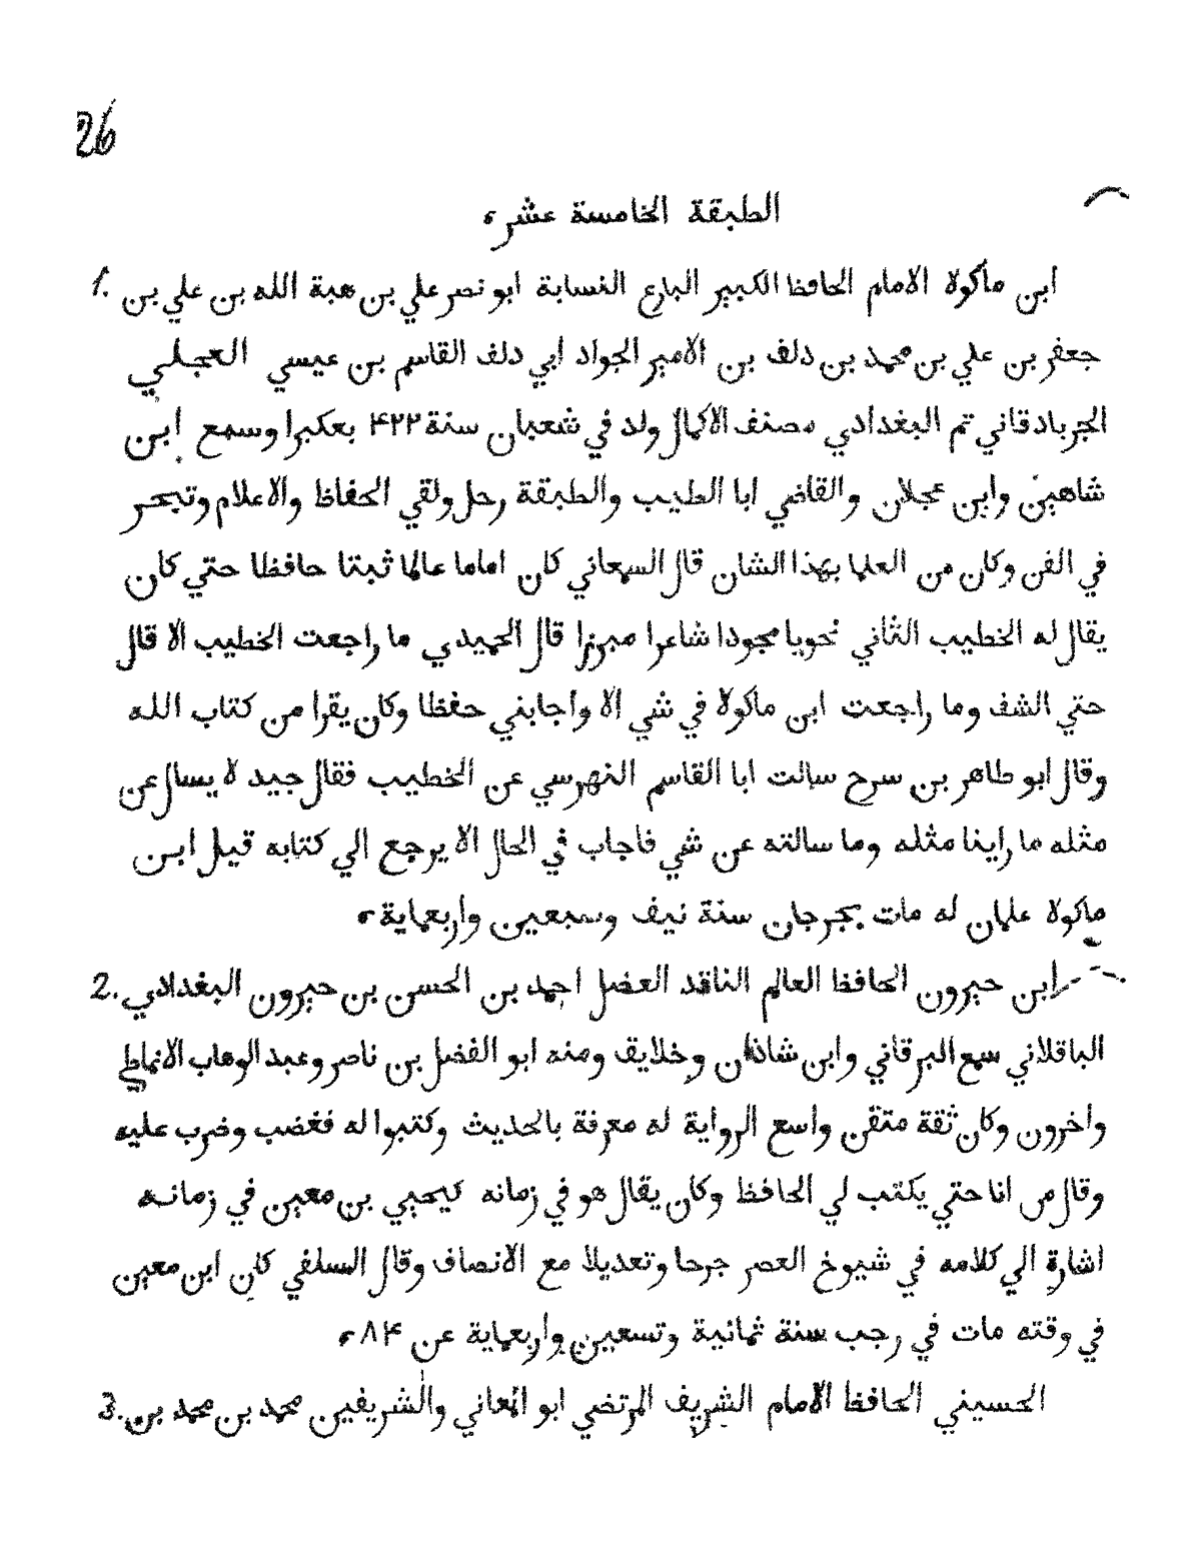 26
الطبقة الخامسة عشره
1. ابن ماكولا الامام الحافظ الكبير البارع النسابة ابو نصر علي بن هبة الله بن علي بن
جعفر بن علي بن محمد بن دلف بن الامير الجواد ابي دلف القاسم بن عيسي العجلي
الجرباذقاني تم البغدادي مصنف الاكمال ولد في شعبان سنة ۴۲۲ بعكبرا وسمع ابن
شاهين وابن عجلان والقاضي ابا الطيب والطبقة رحل ولقي الحفاظ والاعلام وتبحر
في الفن وكان من العلما بهذا الشان قال السمعاني كان اماما عالما ثبتا حافظا حتي كان
يقال له الخطيب الثاني نحويا مجودا شاعرا مبرزا قال الحميدي ما راجعت الخطيب الا قال
حتي الشف وما راجعت ابن ماكولا في شي الا واجابني حفظا وكان يقرا من كتاب الله
وقال ابو طاهر بن سرح سالت ابا القاسم النهرسي عن الخطيب فقال جيد لا يسال عن
مثله ما راينا مثله وما سالته عن شي فاجاب في الحال الا يرجع الي كتابه قيل ابن
ماكولا علمان له مات بجرجان سنة نيف وسبعين واربعماية ه
2. ابن حيرون الحافظ العالم الناقد العضل احمد بن الحسن بن حيرون البغدادي
الباقلاني سمع البرقاني وابن شاذان وخلايق ومنه ابو الفضل بن ناصر وعبد الوهاب الانماطي
واخرون وكان ثقة متقن واسع الرواية له معرفة بالحديث وكتبوا له فغضب وضرب عليه
وقال من انا حتي يكتب لي الحافظ وكان يقال هو في زمانه كيحيي بن معين في زمانه
اشارة الي كلامه في شيوخ العصر جرحا وتعديلا مع الانصاف وقال السلفي كان ابن معين
في وقته مات في رجب سنة ثمانية وتسعين واربعماية عن ۸۴ ه
3. الحسيني الحافظ الامام الشريف المرتضي ابو المعاني والشريفين محمد بن محمد بن